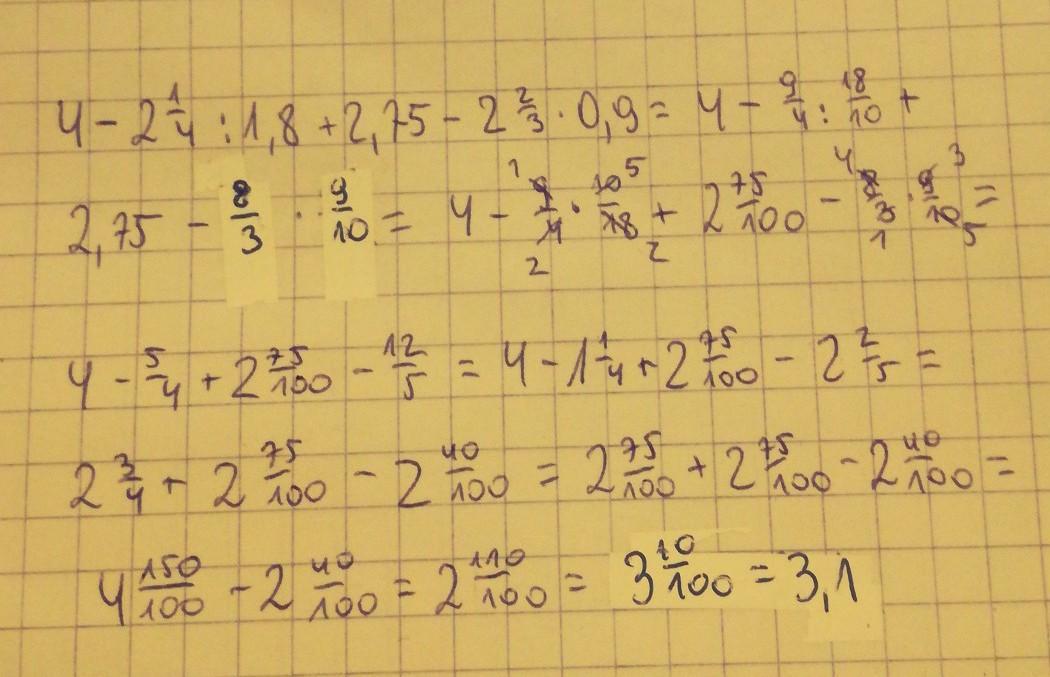 4 - 2 1/4 : 1,8 + 2,75 - 2 2/3 · 0,9 = 4 - 9/4 : 18/10 +
2,75 - 8/3 · 9/10 = 4 - 1 9/4 2 · 10 5/18 2 + 2 75/100 - 4 8/3 1 · 9 3/10 5 =
4 - 5/4 + 2 75/100 - 12/5 = 4 - 1 1/4 + 2 75/100 - 2 2/5 =
2 3/4 + 2 75/100 - 2 40/100 = 2 75/100 + 2 75/100 - 2 40/100 =
4 150/100 - 2 40/100 = 2 110/100 = 3 10/100 = 3,1